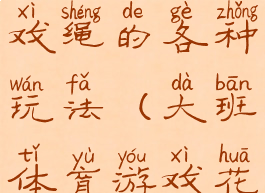 xì shéng de gè zhǒng
戏绳的各种
wán fǎ dà bān
玩法（大班
tǐ yù yóu xì huā
体育游戏花